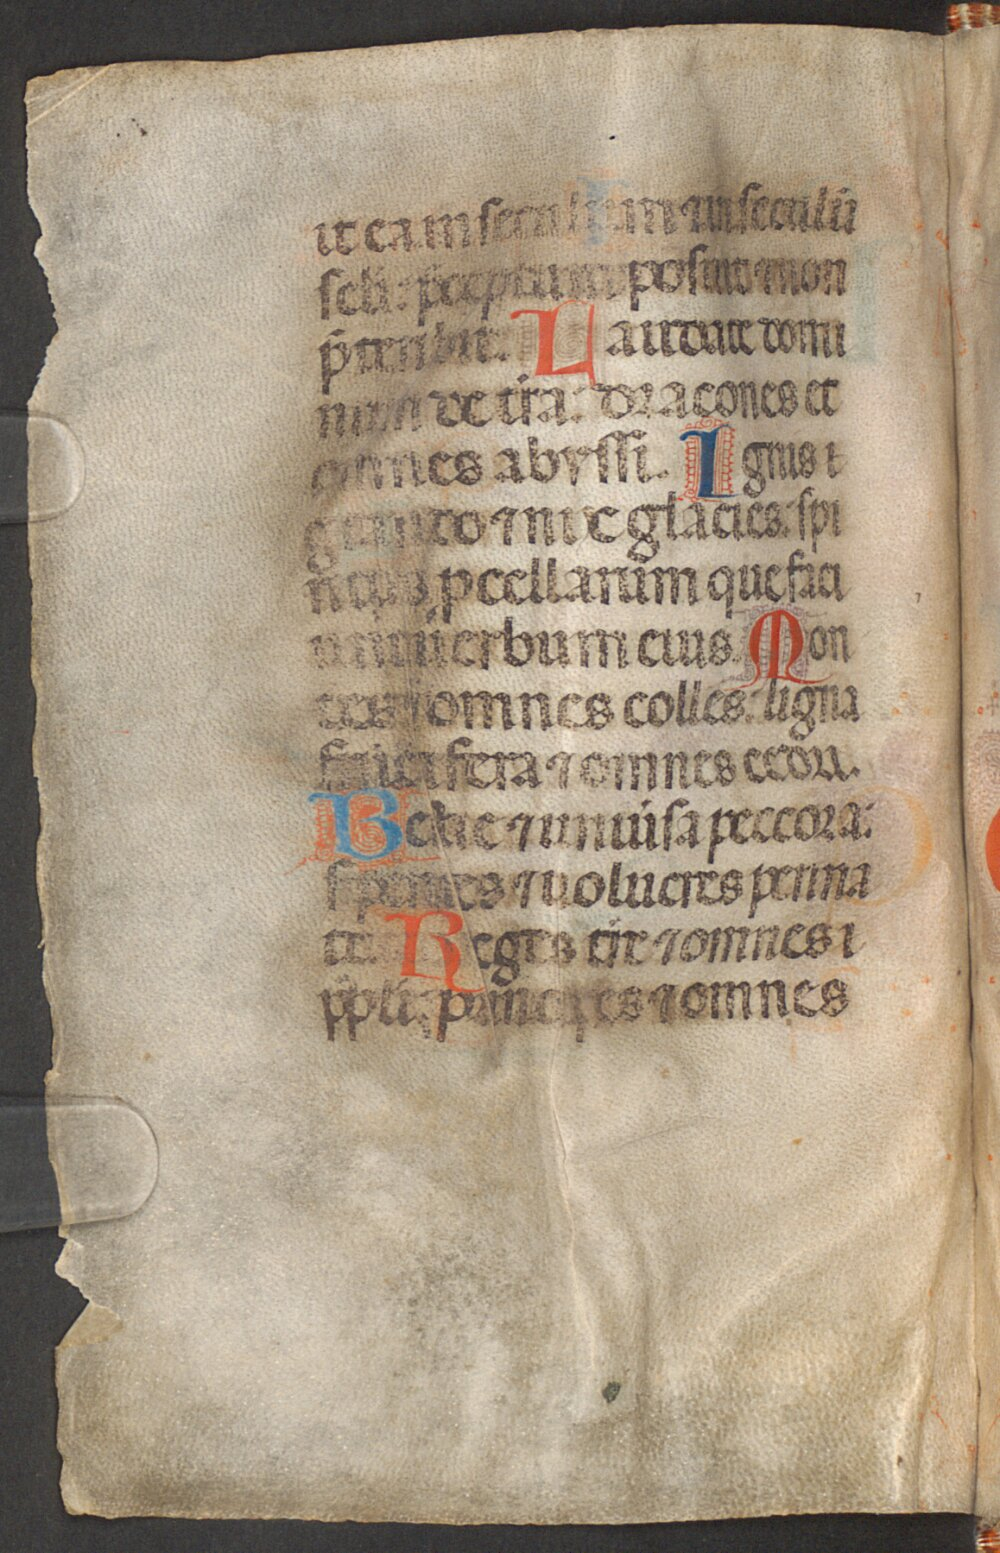 it ea in seculum ⁊ in seculū
seli: preceptum posuit ⁊ non
p̄teribit. Laudate domi
num de tr̄a: dracones et
omnes abyssi. Ignis ⁊
grando ⁊ nix glacies: spi
ritus pcellarum que faci
unt verbum eius. Mon
tes ⁊ omnes colles: ligna
fructifera ⁊ omnes cedri.
Bestie ⁊ univ̄sa peccora:
serpentes ⁊ volucres penna
te. Reges tr̄e ⁊ omnes
pp̄li: principes ⁊ omnes